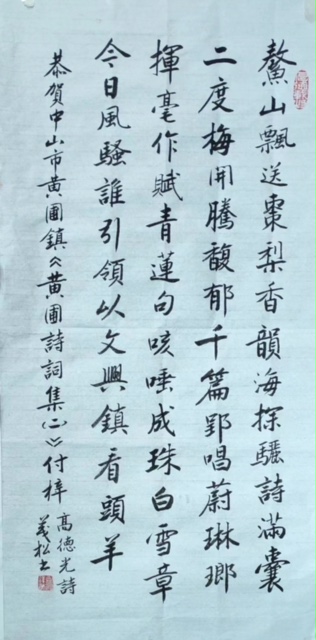 鰲山飄送棗梨香韻海探驪詩滿囊
二度梅開騰馥郁千篇郢唱蔚琳瑯
揮毫作賦青蓮句咳唾成珠白雪章
今日風騷誰引領以文興鎮看頭羊
恭賀中山市黃圃鎮《黃圃詩詞集(二)》付梓
高德光詩
義松书